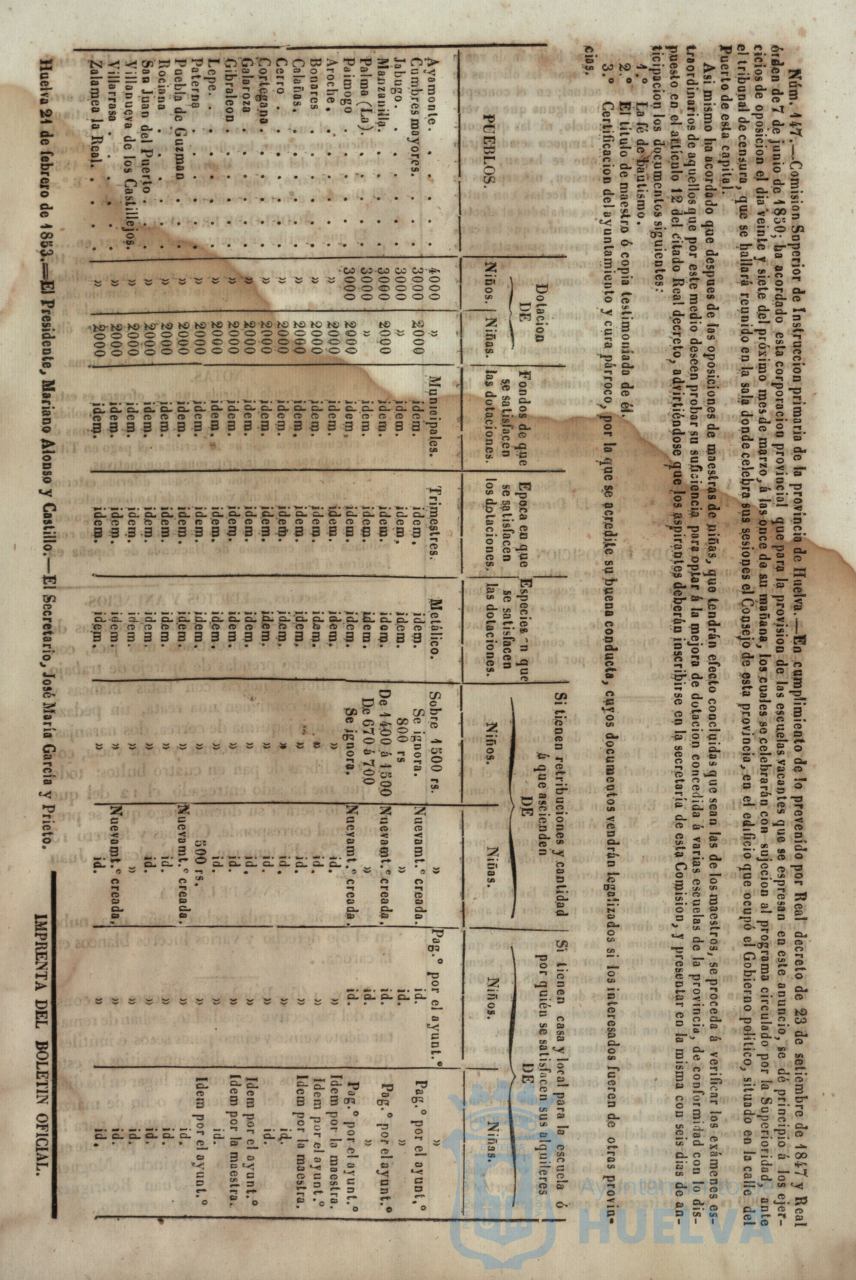 Núm. 147.—Comision Superior de Instruccion primaria de la provincia de Huelva.—En cumplimiento de lo prevenido por Real decreto de 23 de setiembre de 1847 y Real
órden de 7 de junio de 1850; ha acordado esta corporacion provincial que para la provision de las escuelas vacantes que se espresan en este anuncio, se dé principio á los ejer-
cicios de oposicion el dia veinte y siete del próximo mes de marzo, á las once de su mañana, los cuales se celebrarán con sujecion al programa circulado por la Superioridad, ante
el tribunal de censura, que se hallará reunido en la sala donde celebra sus sesiones el Consejo de esta provincia, en el edificio que ocupó el Gobierno político, situado en la calle del
Puerto de esta capital.
Asi mismo ha acordado que despues de las oposiciones de maestras de niñas, que tendrán efecto concluidas que sean las de los maestros, se proceda á verificar los exámenes es-
traordinarios de aquellos que por este medio deseen probar su suficiencia para optar á la mejora de dotacion concedida á varias escuelas de la provincia, de conformidad con lo dis-
puesto en el artículo 12 del citado Real decreto, advirtiéndose que los aspirantes deberán inscribirse en la secretaria de esta Comision, y presentar en la misma con seis dias de an-
ticipacion los documentos siguientes:
1.º La fé de bautismo.
2.º El título de maestro ó copia testimoniada de él.
3.º Certificacion del ayuntamiento y cura párroco, por la que se acredite su buena conducta, cuyos documentos vendrán legalizados si los interesados fueren de otras provin-
cias.
PUEBLOS. Dotacion DE Niños. Niñas. Fondos de que se satisfacen las dotaciones. Epoca en que se satisfacen los dotaciones. Especies en que se satisfacen las dotaciones. Si tienen retribuciones y cantidad á que ascienden DE Niños. Niñas. Si tienen casa y local para la escuela ó por quién se satisfacen sus alquileres DE Niños. Niñas.
Ayamonte. 4000 » Municipales. Trimestres. Metálico. Sobre 1500 rs. » Pag.º por el ayunt.º »
Cumbres mayores. 3000 2000 idem. idem. idem. Se ignora. Nuevamt.º creada. id. Pag.º por el ayunt.º
Jabugo. 3000 » idem. idem, idem. 800 rs » id. »
Manzanilla. 3000 2000 idem. idem. idem. De 1400 á 1500 Nuevamt.º creada. id. Pag.º por el ayunt.º
Palma (La). 3000 » idem. idem. idem. De 670 á 700 » id. »
Paimogo 3000 2000 idem. idem. idem. Se ignora. Nuevamt.º creada. id. Pag.º por el ayunt.º
Aroche. » 2000 idem. idem. idem. » id. » Idem por la maestra.
Bonares » 2000 idem. idem. idem. » id. » Idem por el ayunt.º
Calañas. » 2000 idem. idem. idem. » id. » Idem por la maestra.
Cerro » 2000 idem. idem. idem. » id. » id.
Cortegana. » 2000 idem. idem. idem. » id. » id.
Galaroza » 2000 idem. idem. idem. » id. » Idem por el ayunt.º
Gibraleon » 2000 idem. idem. idem. » id. » Idem por la maestra.
Lepe. » 2000 idem. idem. idem. » id. » id.
Paterna » 2000 idem. idem. idem. » 500 rs. » Idem por el ayunt.º
Puebla de Guzman » 2000 idem. idem. idem. » Nuevamt.º creada. » id.
Rociana » 2000 idem. idem. idem. » id. » id.
San Juan del Puerto » 2000 idem. idem. idem. » id. » id.
Villanueva de los Castillejos. » 2000 idem. idem. idem. » » » id.
Villarrasa » 2000 idem. idem. idem. » Nuevamt.º creada. » id.
Zalamea la Real. » 2000 idem. idem. idem. » id. » id.
Huelva 21 de febrero de 1853.—El Presidente, Mariano Alonso y Castillo.—El Secretario, José María García y Prieto.
IMPRENTA DEL BOLETIN OFICIAL.
Ayuntamiento
HUELVA